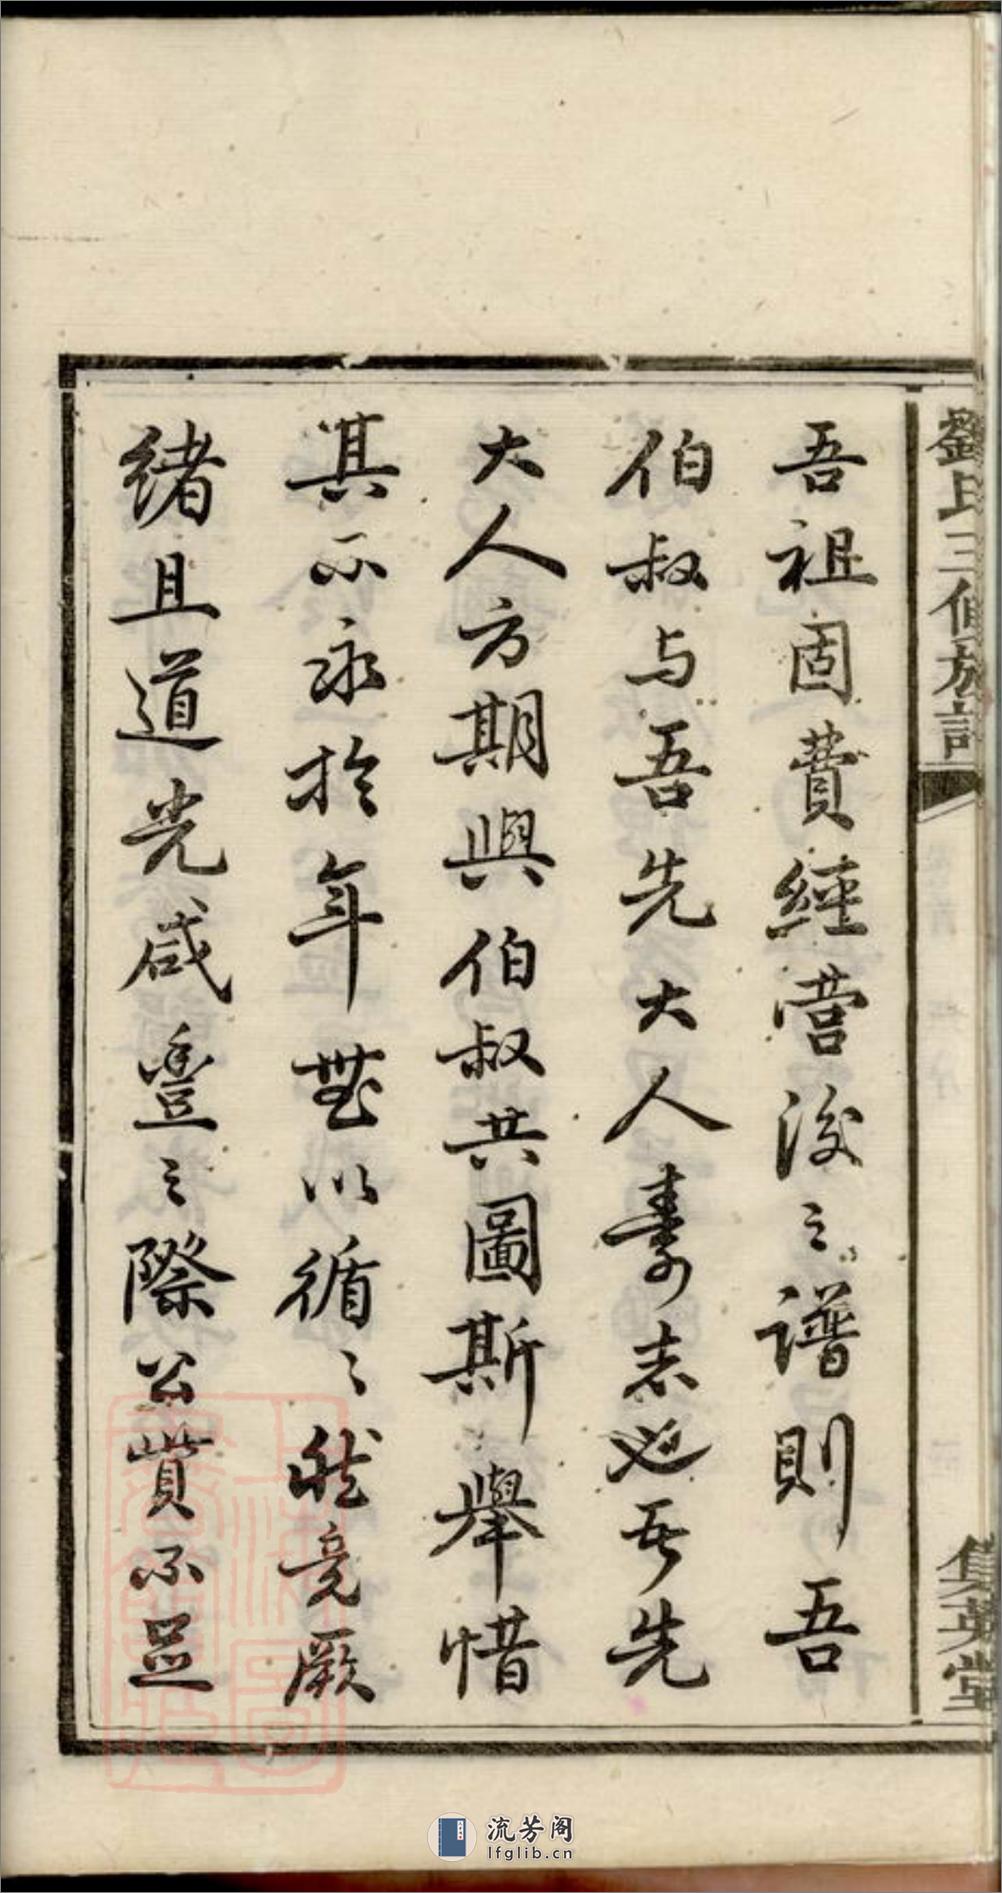 劉氏三修族譜
集英堂
吾祖固費經營後之譜則吾
伯叔与吾先大人壽志也吾先
大人方期與伯叔共圖斯舉惜
其不永於年無以循之然竟厥
緒且道光咸豐之際公貲不足
流芳阁
lfglib.cn